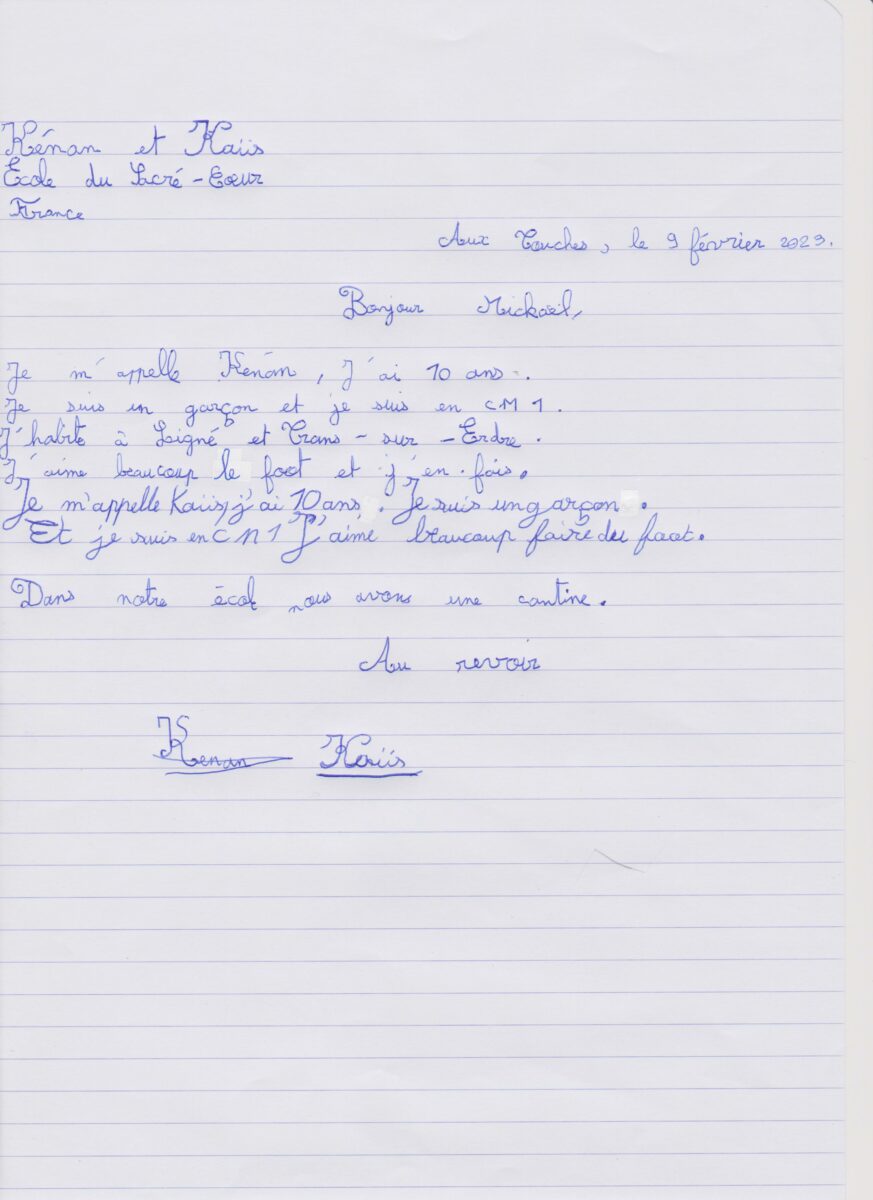 Kénan et Kaiis
École du Sacré-Coeur
France
Aux Touches, le 9 février 2023.
Bonjour Mickaël,
Je m'appelle Kénan, J'ai 10 ans.
Je suis un garçon et je suis en CM1.
J'habite à Ligné et Trans-sur-Erdre.
J'aime beaucoup le foot et j'en fais.
Je m'appelle Kaiis, j'ai 10 ans. Je suis un garçon.
Et je suis en CM1 J'aime beaucoup faire du foot.
Dans notre école nous avons une cantine.
Au revoir
Kenan Kaiis